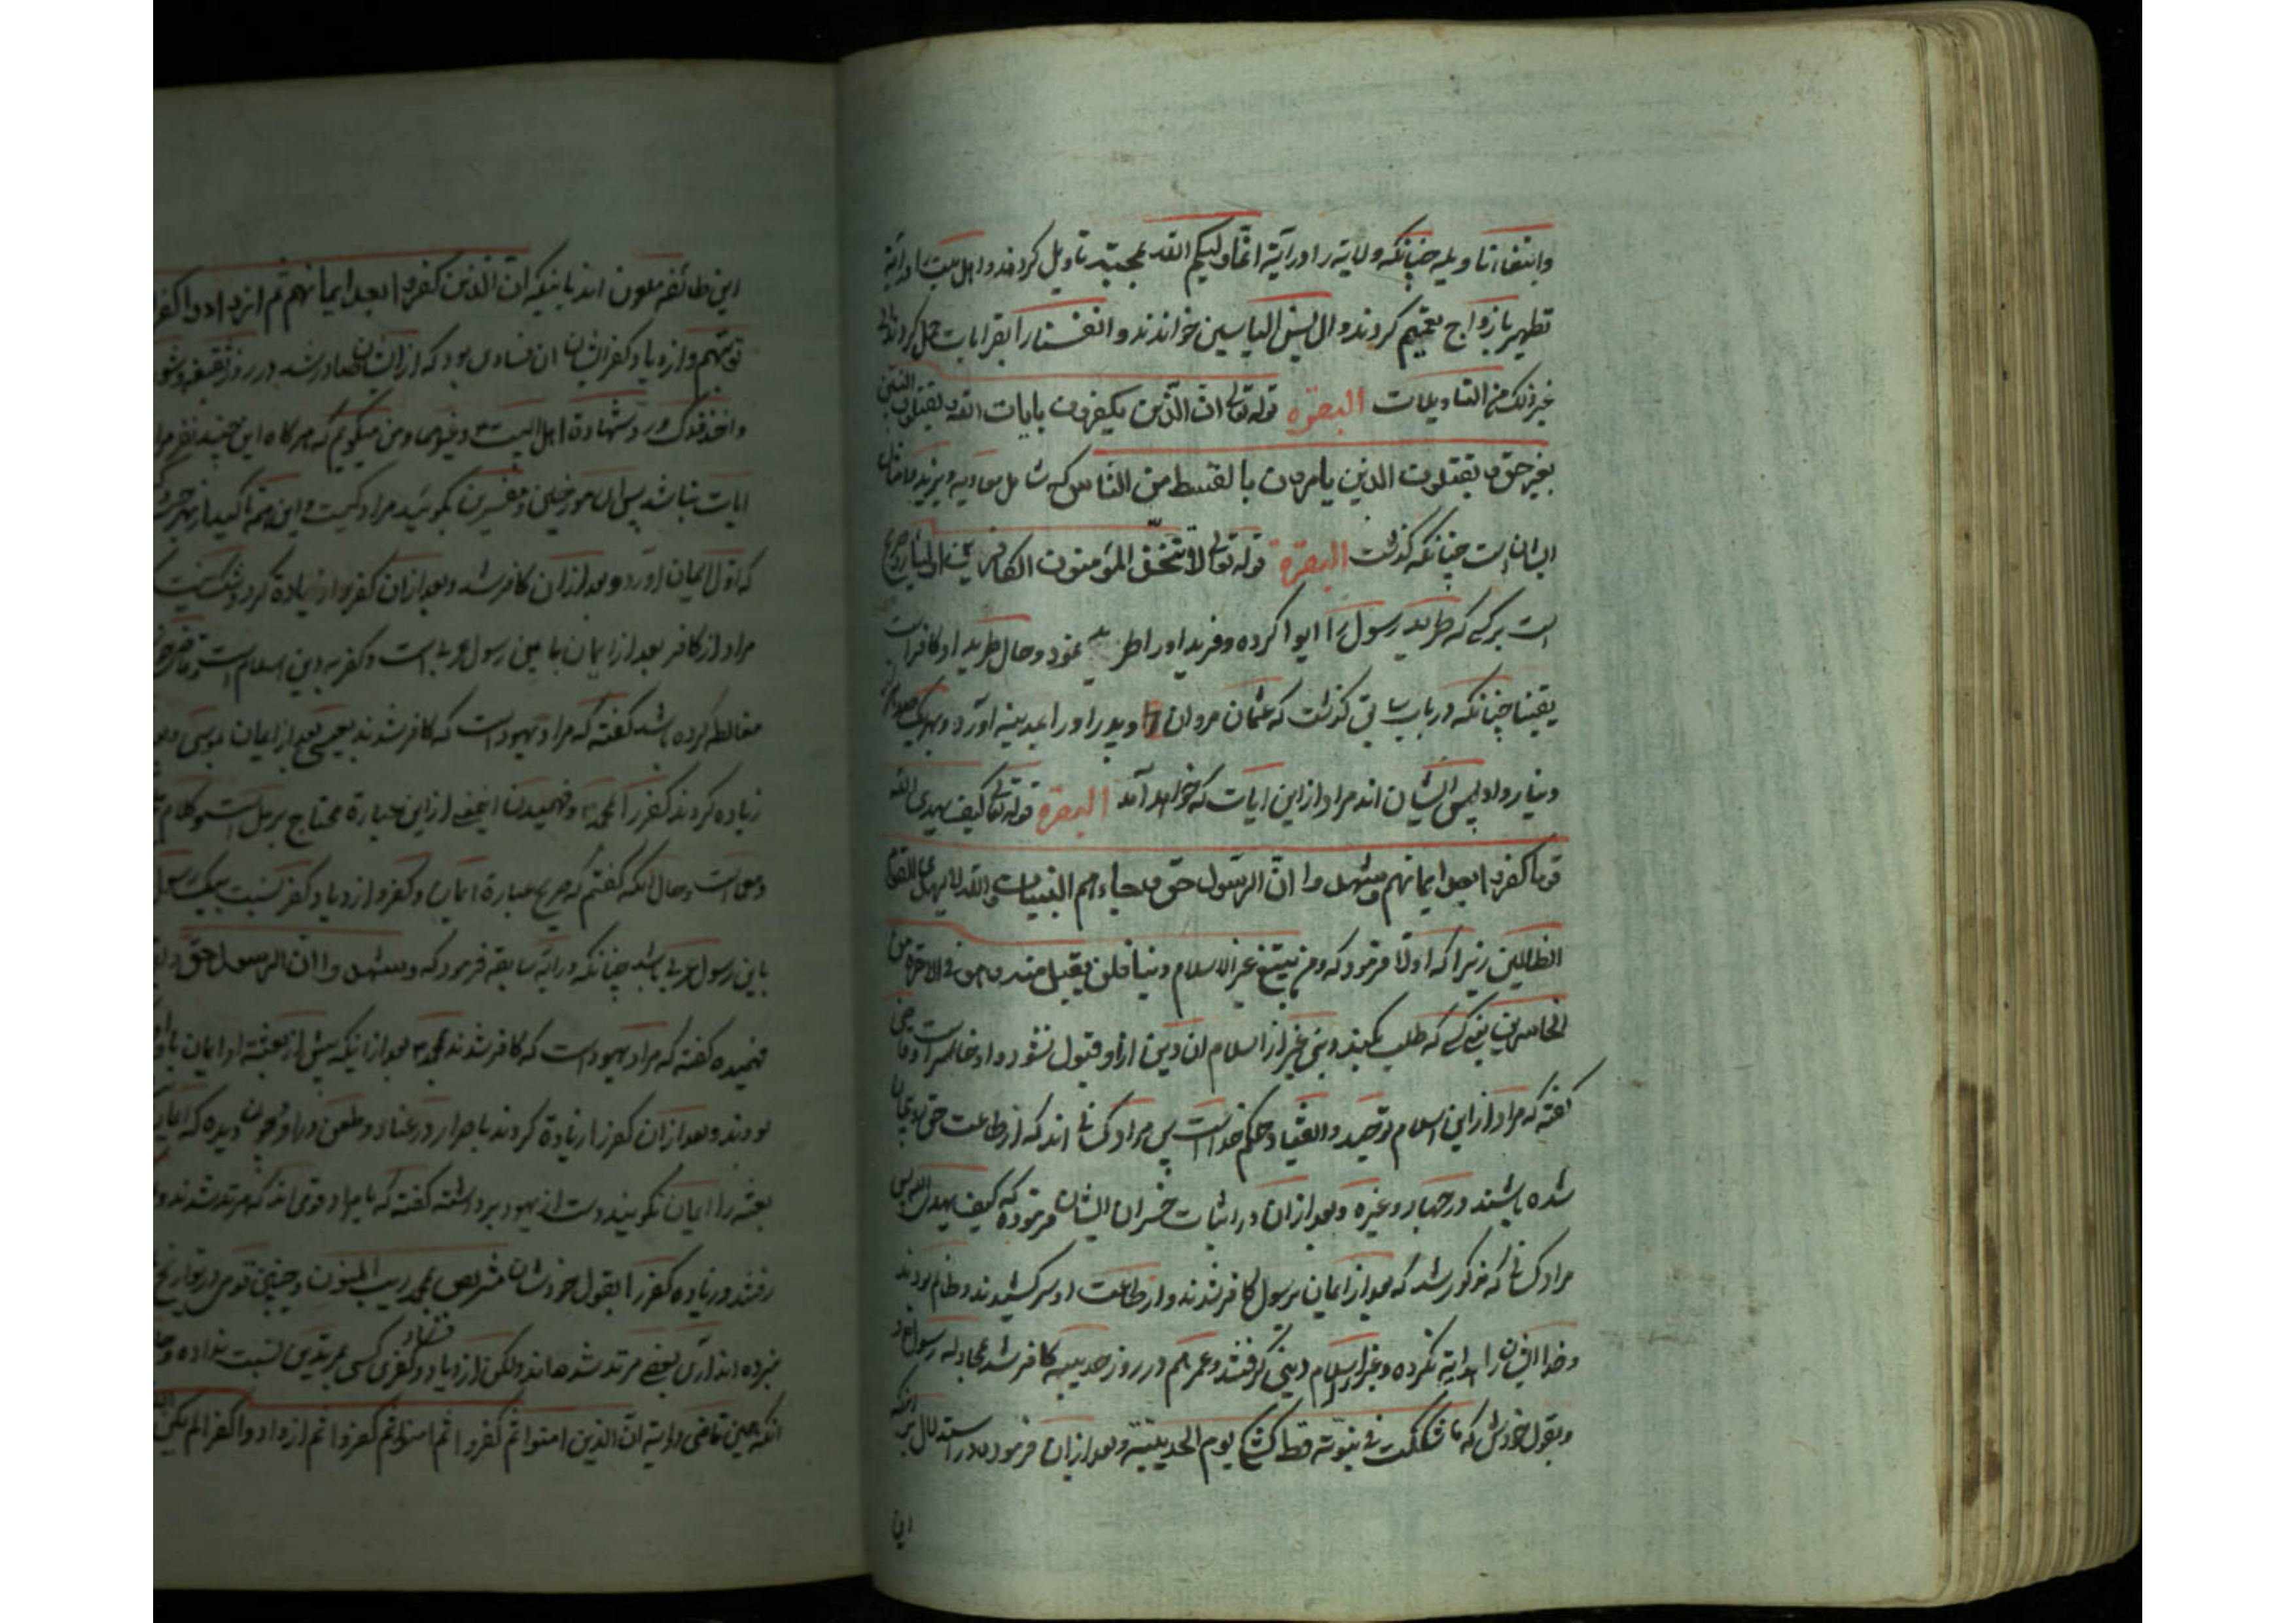 وابتغاء تاویله چنانکه ولایة را در آیة انما ولیکم الله بمحبته تاویل کردند و اهل بیت را در آیة
تطهیر بازواج تعمیم کردند و ال یس الیاسین خواندند و انفسنا را بقرابات حمل کردند الی
غیر ذلک من التاویلات البقرة قوله تعالی ان الذین یکفرون بایات الله و یقتلون النبیین
بغیر حق و یقتلون الذین یامرون بالقسط من الناس که شامل معاویه و یزید و امثال
ایشان است چنانکه گذشت البقرة قوله تعالی لا یتخذ المؤمنون الکافرین اولیاء صریح
است بر کسی که طرید رسول را ایوا کرده و فرید او را طرید نمود و حال طرید او کافر است
یقینا چنانکه در باب سابق گذشت که عثمان مروان و پدر او را بمدینه آورد و بهریک صد هزار
دینار داد پس ایشان اند مراد از این ایات که خواهد آمد البقرة قوله تعالی کیف یهدی الله
قوما کفروا بعد ایمانهم و شهدوا ان الرسول حق و جاءهم البینات و الله لا یهدی القوم
الظالمین زیرا که اولا فرمود که و من یبتغ غیر الاسلام دینا فلن یقبل منه و هو فی الاخرة من
الخاسرین یعنی کسی که طلب بکند دینی غیر از اسلام ان دین از او قبول نشود و او خاسر است و قاضی
گفته که مراد از این اسلام توحید و انقیاد حکم خداست پس مراد کسانی اند که از طاعت حق
شده باشند در جهاد و غیره و بعد از ان در اثبات خسران ایشان فرموده که کیف یهدی الله پس
مراد کسانی که مذکور شد که بعد از ایمان برسول کافر شدند و از طاعت او سرکشیدند و ظالم بودند
و خدا ایشان را هدایة نکرده و غیر از اسلام دینی گرفتند و عمر هم در روز حدیبیه کافر شد بمجادله رسول خدا
و بقول خودش که ما شککت فی نبوته قط کشکی یوم الحدیبیة و بعد از ان فرمود در استدلال بر آنکه
این
این طائفه ملعون اند باینکه ان الذین کفروا بعد ایمانهم ثم ازدادوا کفرا
توبتهم و ازدیاد کفر ایشان ان فسادی بود که از ایشان صادر شد در روز سقیفه و شوری
و اخذ فدک و رد شهادة اهل البیت و غیرهما و من میگویم که هرگاه این چند نفر مراد
ایات نباشد پس اهل مورخین و مفسرین بگویند مراد کیست و این همه تاکید از بهر
که اول ایمان آورد و بعد از ان کافر شد و بعد از ان کفر را زیادة کرد
مراد از کافر بعد از ایمان باین رسول عربی است و کفر بدین اسلام است و قاضی
مغالطه کرده باشد گفته که مراد یهود است که کافر شدند بعیسی بعد از ایمان بموسی
زیاده کردند کفر را بمحمد و فهمیدن اینمعنی از این عبارة محتاج برمل است و کلام
است و حال آنکه گفتم که صریح عبارة ایمان و کفر و ازدیاد کفر نسبت بیک رسول
باین رسول عربی باشد چنانکه در آیة سابقه فرمود که و شهدوا ان الرسول حق
فهمیده گفته که مراد یهود است که کافر شدند بمحمد بعد از اینکه پیش از بعثت او ایمان باو
بودند و بعد از ان کفر را زیادة کردند باصرار در عناد و طعن در او و چون دیده که ایمان
بعثت را ایمان نگویند دست از یهود برداشته گفته که یا مراد قومی اند که مرتد شدند و
رفتند و زیاده کفر را بقول خودشان نتربص بمحمد ریب المنون و چنین قومی در تواریخ
نبرده اند آری بعضی مرتد شده اند ولکن ازدیاد کفری کسی بمرتدین نسبت نداده
آنکه همین قاضی در آیة ان الذین امنوا ثم کفروا ثم امنوا ثم کفروا ثم ازدادوا کفرا لم یکن